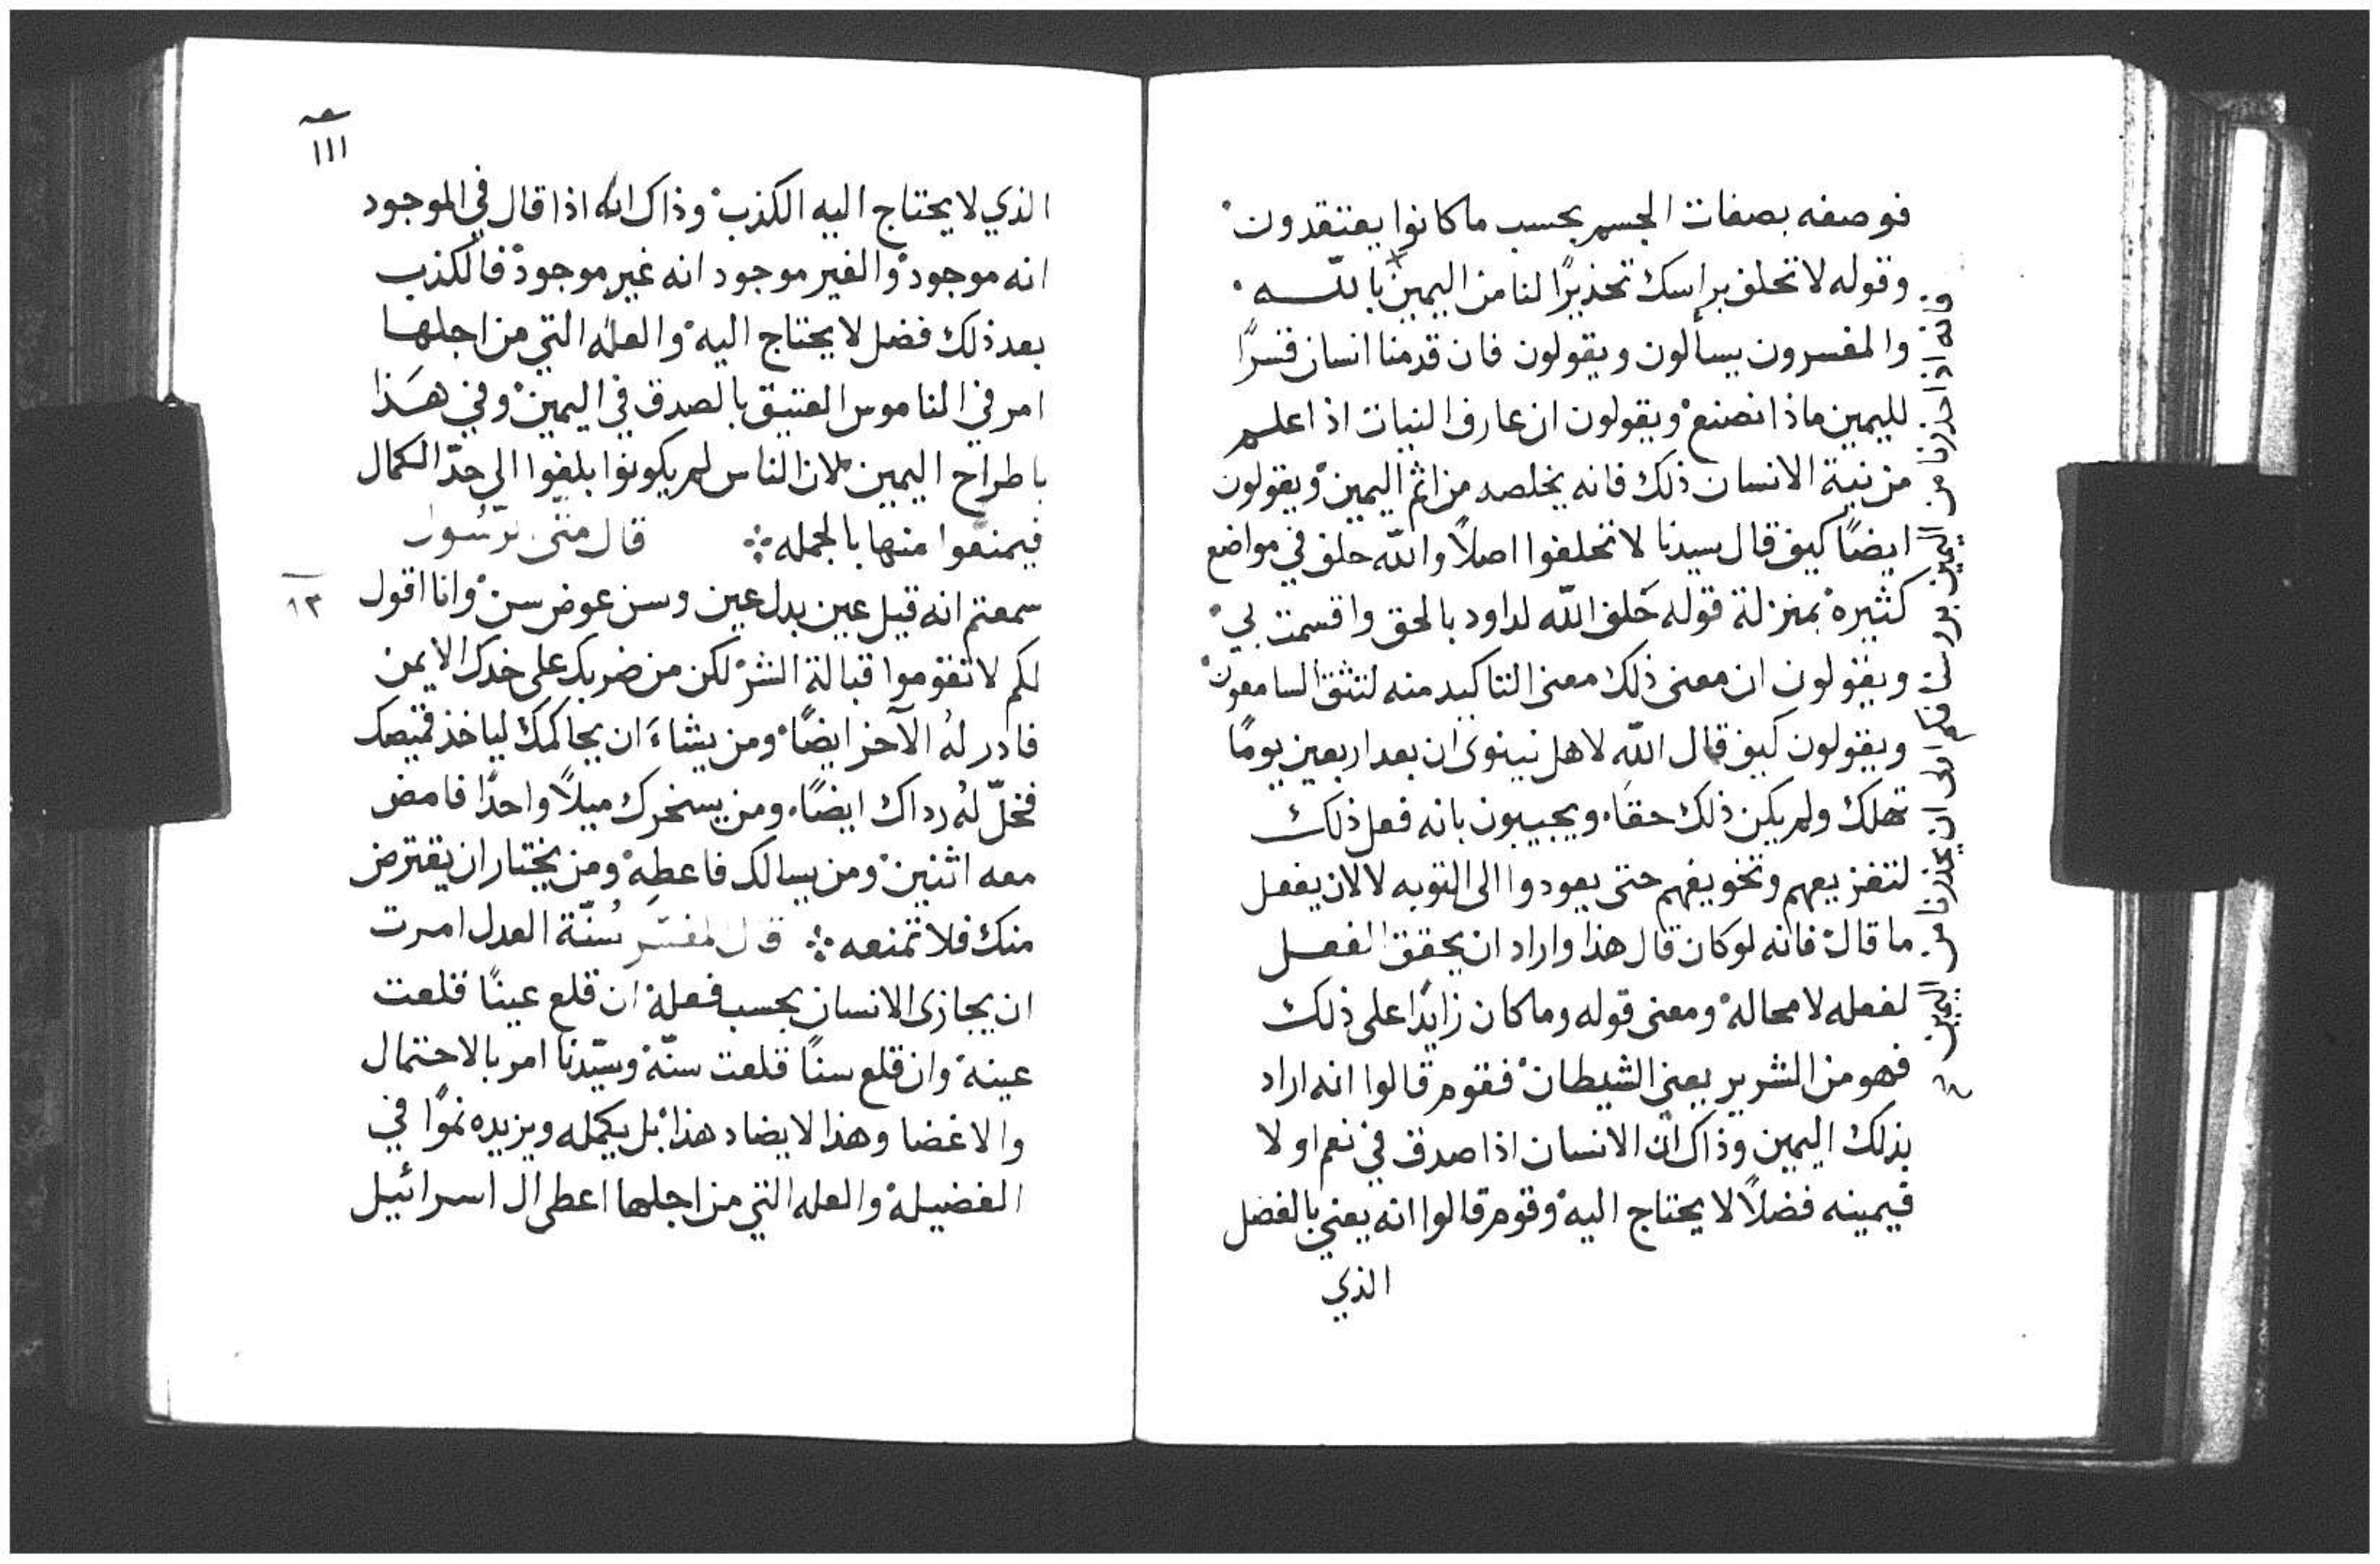 فوصفه بصفات الجسم بحسب ما كانوا يعتقدون
وقوله لا تحلف براسك تحذيرًا لنا من اليمين بالله
والمفسرون يسألون ويقولون فان قدمنا انسان قسرًا
لليمين ماذا نصنع ويقولون ان عارف النيات اذا علم
من نية الانسان ذلك فانه يخلصه من اثم اليمين ويقولون
ايضًا كيف قال سيدنا لا تحلفوا اصلاً والله حلف في مواضع
كثيره بمنزلة قوله حَلف الله لداود بالحق واقسمت بي
ويقولون ان معنى ذلك معنى التاكيد منه لتثق السامعون
ويقولون كيف قال الله لاهل نينوى ان بعد اربعين يومًا
تهلك ولم يكن ذلك حقًا ويجيبون بانه فعل ذلك
لتفزيعهم وتخويفهم حتى يعودوا الى التوبه لا لان يفعل
ما قال فانه لو كان قال هذا واراد ان يحقق الفعل
لفعله لا محاله ومعنى قوله وما كان زايدًا على ذلك
فهو من الشرير يعني الشيطان فقوم قالوا انه اراد
بذلك اليمين وذاك ان الانسان اذا صدق في نعم او لا
فيمينه فضلاً لا يحتاج اليه وقوم قالوا انه يعني بالفضل
الذي
فانه اذا حذرنا من اليمين بروسنا فكم اولى ان يحذرنا من اليمين
١١١
الذي لا يحتاج اليه الكذب وذاك انه اذا قال في الموجود
انه موجود والغير موجود انه غير موجود فالكذب
بعد ذلك فضل لا يحتاج اليه والعله التي من اجلها
امر في الناموس العتيق بالصدق في اليمين وفي هذا
باطراح اليمين لان الناس لم يكونوا بلغوا الى حدّ الكمال
فيمنعوا منها بالجمله قال متى الرسول
سمعتم انه قيل عين بدل عين وسن عوض سن وانا اقول
١٣
لكم لا تقوموا قبالة الشر لكن من ضربك على خدك الايمن
فادر لهُ الآخر ايضًا ومن يشاءَ ان يحاكمك لياخذ قميصك
فخلّ لهُ رداك ايضًا ومن يسخرك ميلاً واحدًا فامض
معه اثنين ومن يسالك فاعطِه ومن يختار ان يقترض
منك فلا تمنعه قال المفسر سُنّة العدل امرت
ان يجازى الانسان بحسب فعله ان قلع عينًا قلعت
عينه وان قلع سنًا قلعت سنّه وسيّدنا امر بالاحتمال
والاغضا وهذا لا يضاد هذا بل يكمله ويزيده نموًا في
الفضيله والعله التي من اجلها اعطى ال اسرائيل